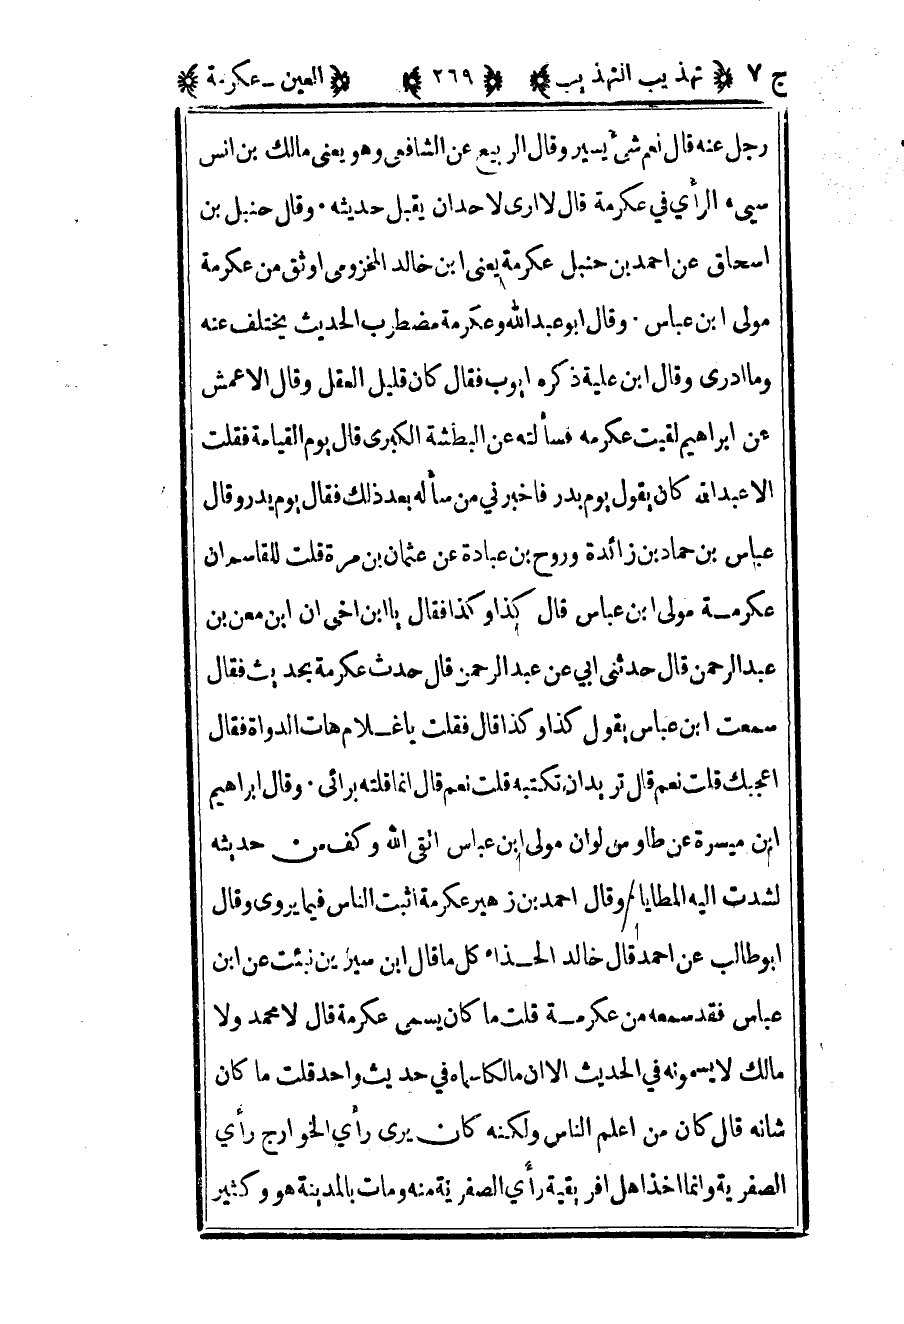 ج ٧ تهذيب التهذيب ٢٦٩ العين ـ عكرمة
رجل عنه قال نعم شئ يسير وقال الربيع عن الشافعى وهو يعنى مالك بن انس
سيىء الرأي في عكرمة قال لا ارى لاحد ان يقبل حديثه ٠ وقال حنبل بن
اسحاق عن احمد بن حنبل عكرمة يعنى ابن خالد المخزومى اوثق من عكرمة
مولى ابن عباس ٠ وقال ابو عبد الله وعكرمة مضطرب الحديث يختلف عنه
وما ادرى وقال ابن علية ذكره ايوب فقال كان قليل العقل وقال الاعمش
عن ابراهيم لقيت عكرمه فسألته عن البطشة الكبرى قال يوم القيامة فقلت
الا عبد الله كان يقول يوم بدر فاخبرني من سأله بعد ذلك فقال يوم بدر وقال
عباس بن حماد بن زائدة وروح بن عبادة عن عثمان بن مرة قلت للقاسم ان
عكرمــة مولى ابن عباس قال كذا وكذا فقال يا ابن اخى ان ابن معن بن
عبد الرحمن قال حدثنى ابي عن عبد الرحمن قال حدث عكرمة بحديث فقال
سمعت ابن عباس يقول كذا وكذا قال فقلت يا غــلام هات الدواة فقال
اعجبك قلت نعم قال تريد ان تكتبه قلت نعم قال انما قلته برائى ٠ وقال ابراهيم
ابن ميسرة عن طاوس لو ان مولى ابن عباس اتقى الله وكف من حديثه
لشدت اليه المطايا وقال احمد بن زهير عكرمة اثبت الناس فيما يروى وقال
ابو طالب عن احمد قال خالد الحــذاء كل ما قال ابن سيرين نبئت عن ابن
عباس فقد سمعه من عكرمــة قلت ما كان يسمى عكرمة قال لا محمد ولا
مالك لا يسمونه في الحديث الا ان مالكا سماه في حديث واحد قلت ما كان
شانه قال كان من اعلم الناس ولكنه كان يرى رأي الخوارج رأي
الصفرية وانما اخذ اهل افريقية رأي الصفرية منه ومات بالمدينة هو وكثير